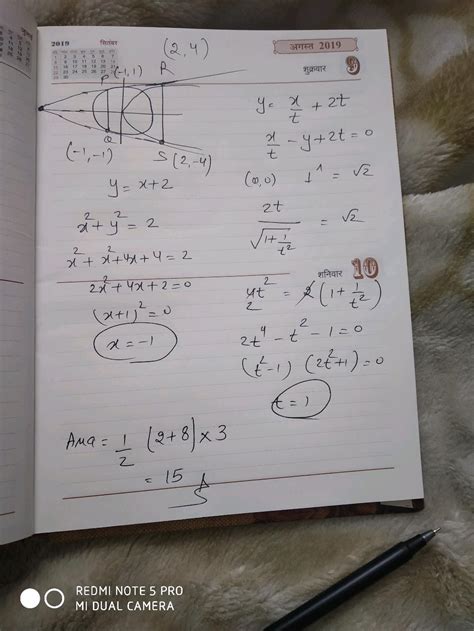 2019 सितंबर
अगस्त 2019
शुक्रवार 9
(2,4)
P (-1,1) R
Q
(-1,-1) S (2,-4)
y = x+2
x² + y² = 2
x² + x² + 4x + 4 = 2
2x² + 4x + 2 = 0
(x+1)² = 0
x = -1
y = x/t + 2t
x/t - y + 2t = 0
(0,0) = √2
2t / √(1 + 1/t²) = √2
शनिवार 10
4t²/2 = 2(1 + 1/t²)
2t⁴ - t² - 1 = 0
(t² - 1) (2t² + 1) = 0
t = 1
Area = 1/2 (2+8) × 3
= 15
REDMI NOTE 5 PRO
MI DUAL CAMERA